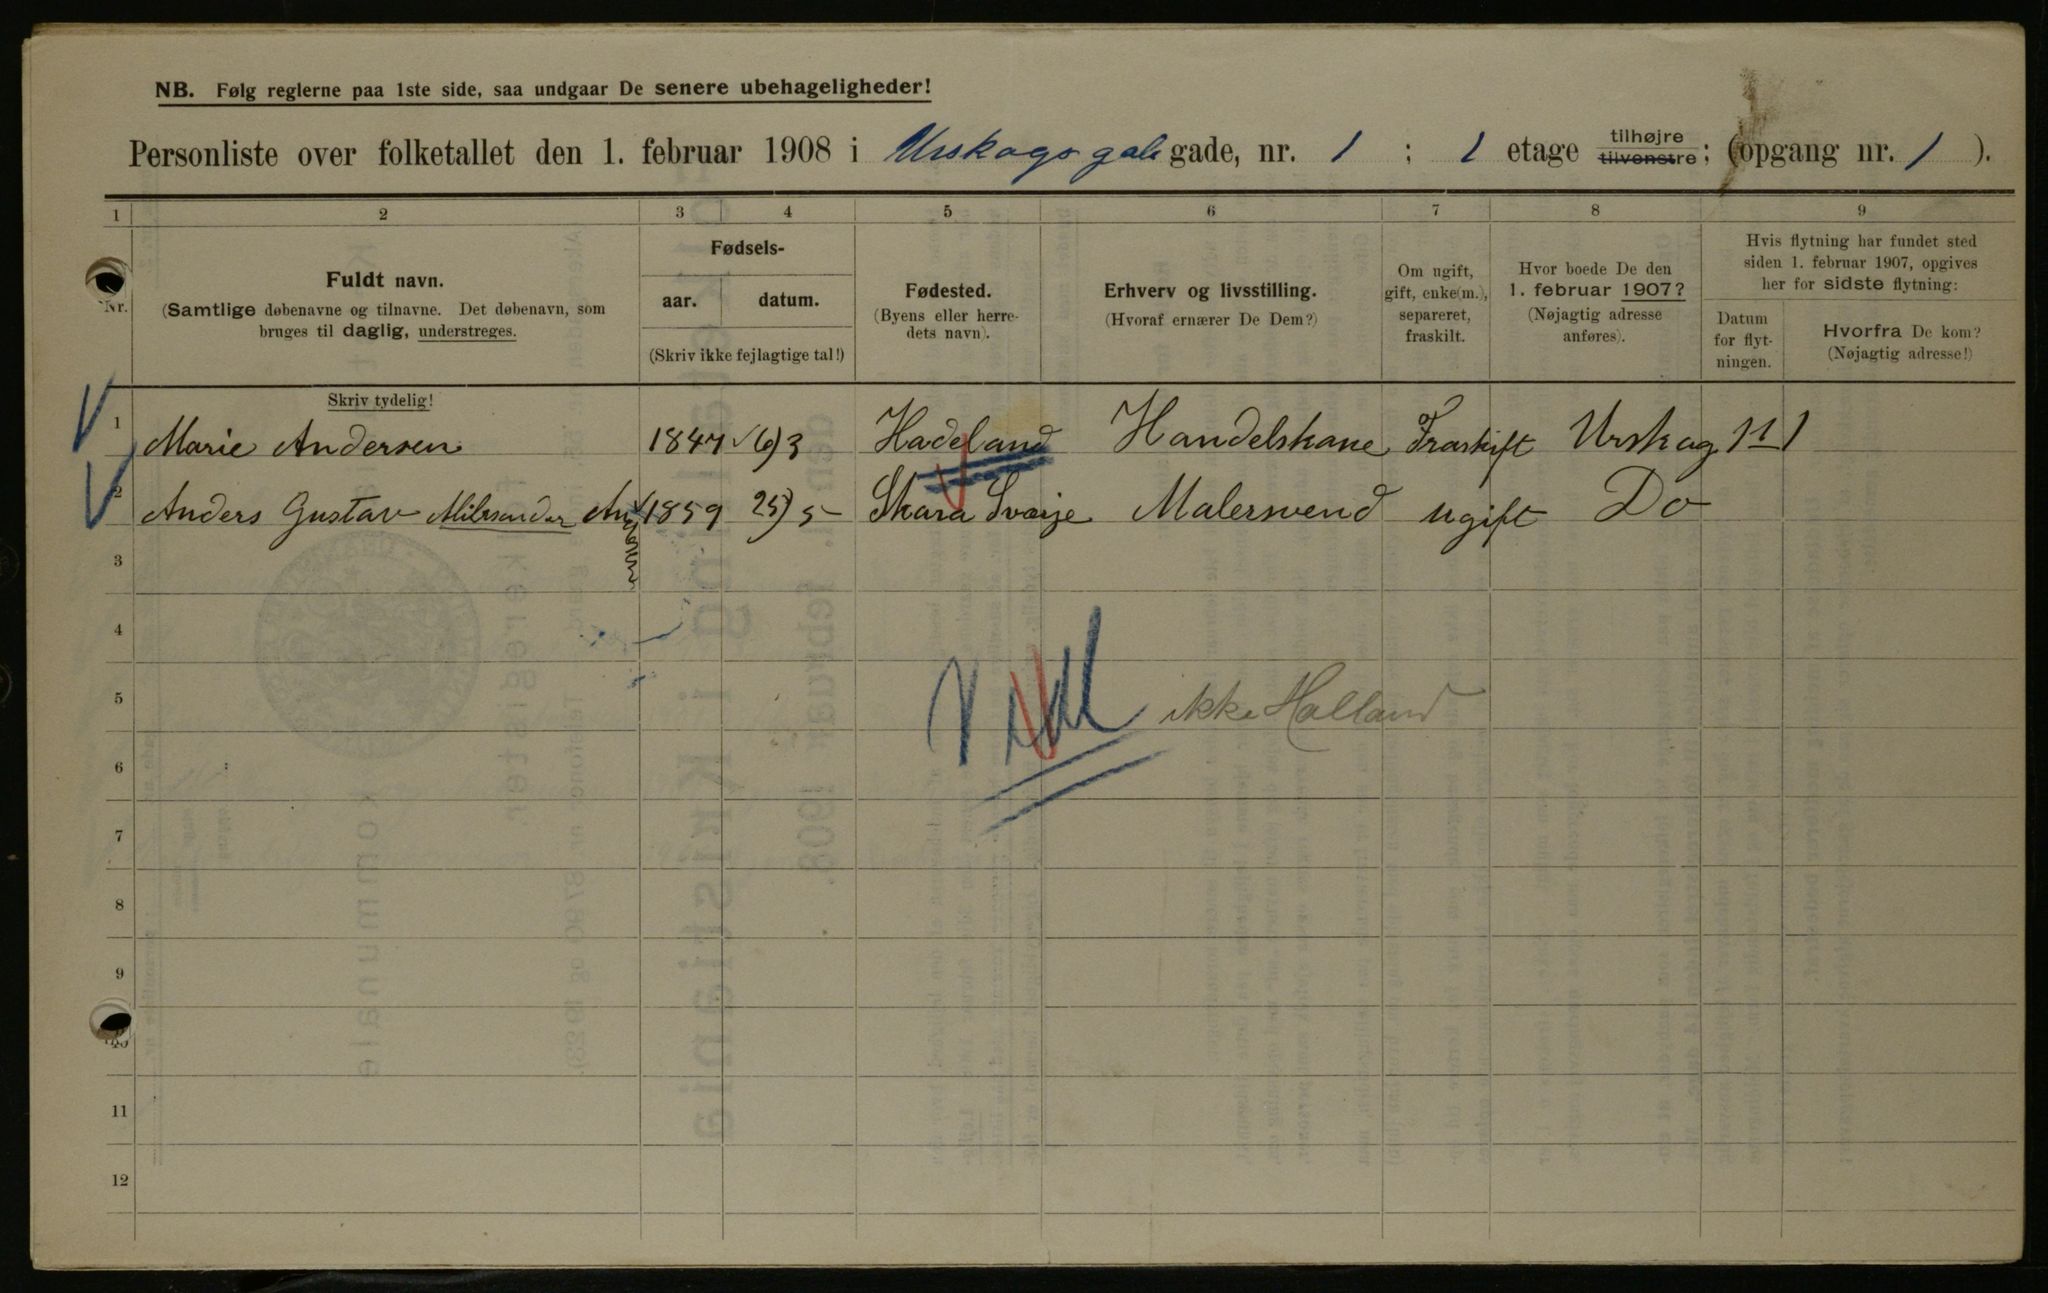 NB. Følg reglerne paa 1ste side, saa undgaar De senere ubehageligheder!
Personliste over folketallet den 1. februar 1908 i Urskogs gade gade, nr. 1 ; 1 etage tilhøjre tilvenstre; (opgang nr. 1 ).
1 2 3 4 5 6 7 8 9
Nr.
Fuldt navn.
(Samtlige døbenavne og tilnavne. Det døbenavn, som
bruges til daglig, understreges.
Fødsels-
aar. datum.
(Skriv ikke fejlagtige tal!)
Fødested.
(Byens eller herre-
dets navn).
Erhverv og livsstilling.
(Hvoraf ernærer De Dem?)
Om ugift,
gift, enke(m.),
separeret,
fraskilt.
Hvor boede De den
1. februar 1907?
(Nøjagtig adresse
anføres).
Hvis flytning har fundet sted
siden 1. februar 1907, opgives
her for sidste flytning:
Datum
for flyt-
ningen.
Hvorfra De kom?
(Nøjagtig adresse!)
Skriv tydelig!
1 Marie Andersen 1847 6/3 Hadeland Handelskane Fraskift Urskog 1
2 Anders Gustav 1859 25/5 Skara Sverje Malersvend ugift Do
3
4
5 ikke Halland
6
7
8
9
10
11
12